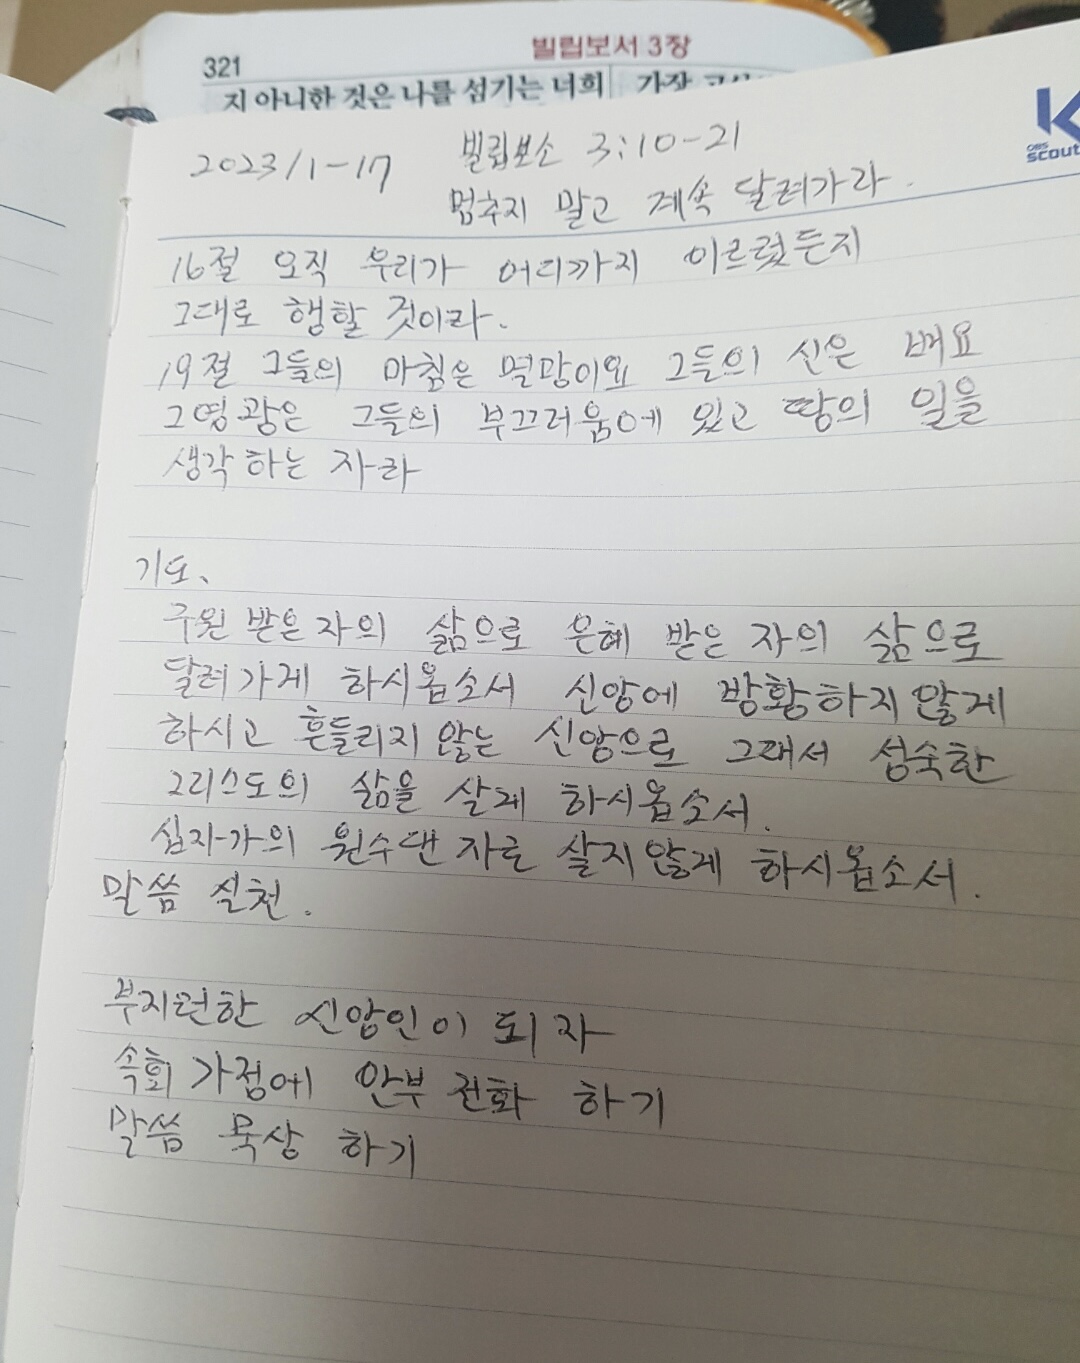 321
빌립보서 3장
지 아니한 것은 나를 섬기는 너희
가장
OBS
SCOUT
2023/1-17 빌립보소 3:10-21
멈추지 말고 계속 달려가라.
16절 오직 우리가 어디까지 이르렀든지
그대로 행할 것이라.
19절 그들의 마침은 멸망이요 그들의 신은 배요
그영광은 그들의 부끄러움에 있고 땅의 일을
생각하는 자라
기도、
구원 받은 자의 삶으로 은혜 받은 자의 삶으로
달려가게 하시옵소서 신앙에 방황하지 않게
하시고 흔들리지 않는 신앙으로 그래서 성숙한
그리스도의 삶을 살게 하시옵소서.
십자가의 원수댄 자로 살지 않게 하시옵소서.
말씀 실천.
부지런한 신앙인이 되자
속회 가정에 안부 전화 하기
말씀 묵상 하기